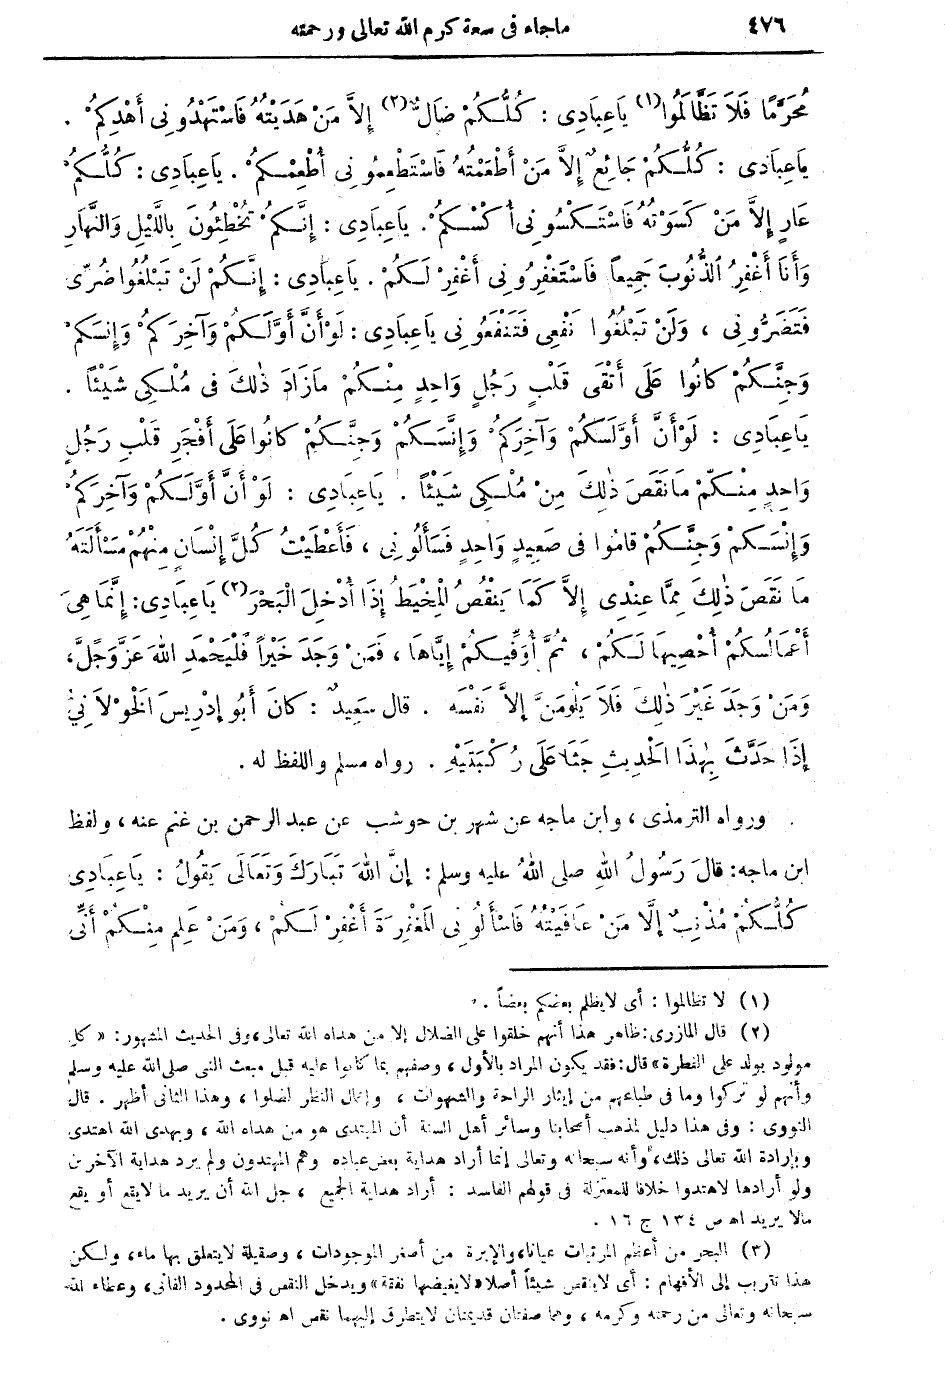 ٤٧٦ ماجاء فى سعة كرم الله تعالى ورحمته
مُحَرَّمًا فَلَا تَظَّالَمُوا(١) يَاعِبَادِى : كُلُّكُمْ ضَالٌّ(٢) إِلاَّ مَنْ هَدَيْتُهُ فَاسْتَهْدُونِى أَهْدِكُمْ .
يَاعِبَادَى : كُلُّكُمْ جَائِعٌ إِلاَّ مَنْ أَطْعَمْتُهُ فَاسْتَطْعِمُونِى أُطْعِمْكُمْ . يَاعِبَادِى : كُلُّكُمْ
عَارٍ إِلاَّ مَنْ كَسَوْتُهُ فَاسْتَكْسُونِى أَكْسُكُمْ . يَاعِبَادِى : إِنَّكُمْ تُخْطِئُونَ بِاللَّيْلِ وَالنَّهَارِ
وَأَنَا أَغْفِرُ الذُّنُوبَ جَمِيعاً فَاسْتَغْفِرُونِى أَغْفِرْ لَكُمْ . يَاعِبَادِى : إِنَّكُمْ لَنْ تَبْلُغُوا ضُرِّى
فَتَضُرُّونِى ، وَلَنْ تَبْلُغُوا نَفْعِى فَتَنْفَعُونِى يَاعِبَادِى : لَوْ أَنَّ أَوَّلَكُمْ وَآخِرَكُمْ وَإِنْسَكُمْ
وَجِنَّكُمْ كَانُوا عَلَى أَتْقَى قَلْبِ رَجُلٍ وَاحِدٍ مِنْكُمْ مَازَادَ ذٰلِكَ فِى مُلْكِى شَيْئاً .
يَاعِبَادِى : لَوْ أَنَّ أَوَّلَكُمْ وَآخِرَكُمْ وَإِنْسَكُمْ وَجِنَّكُمْ كَانُوا عَلَى أَفْجَرِ قَلْبِ رَجُلٍ
وَاحِدٍ مِنْكُمْ مَانَقَصَ ذٰلِكَ مِنْ مُلْكِى شَيْئاً . يَاعِبَادِى : لَوْ أَنَّ أَوَّلَكُمْ وَآخِرَكُمْ
وَإِنْسَكُمْ وَجِنَّكُمْ قَامُوا فِى صَعِيدٍ وَاحِدٍ فَسَأَلُونِى ، فَأَعْطَيْتُ كُلَّ إِنْسَانٍ مِنْهُمْ مَسْأَلَتَهُ
مَا نَقَصَ ذٰلِكَ مِمَّا عِنْدِى إِلاَّ كَمَا يَنْقُصُ الْمِخْيَطُ إِذَا أُدْخِلَ الْبَحْرَ(٣) يَاعِبَادِى : إِنَّمَا هِىَ
أَعْمَالُكُمْ أُحْصِيهَا لَكُمْ ، ثُمَّ أُوَفِّيكُمْ إِيَّاهَا ، فَمَنْ وَجَدَ خَيْراً فَلْيَحْمَدِ اللهَ عَزَّ وَجَلَّ ،
وَمَنْ وَجَدَ غَيْرَ ذٰلِكَ فَلَا يَلُومَنَّ إِلاَّ نَفْسَه . قال سَعِيدٌ : كَانَ أَبُو إِدْرِيسَ الْخَوْلَانِيُّ
إِذَا حَدَّثَ بِهٰذَا الْحَدِيثِ جَثَا عَلَى رُكْبَتَيْهِ . رواه مسلم واللفظ له .
. ورواه الترمذى ، وابن ماجه عن شهر بن حوشب عن عبد الرحمن بن غنم عنه ، ولفظ
ابن ماجه : قَالَ رَسُولُ اللهِ صلى اللهُ عليه وسلم : إِنَّ اللهَ تَبَارَكَ وَتَعَالَى يَقُولُ : يَاعِبَادِى
كُلُّكُمْ مُذْنِبٌ إِلَّا مَنْ عَافَيْتُهُ فَاسْأَلُونِى الْمَغْفِرَةَ أَغْفِرْ لَكُمْ ، وَمَنْ عَلِمَ مِنْكُمْ أَنِّى
(١) لا تظالموا : أى لايظلم بعضكم بعضاً .
(٢) قال المازرى : ظاهر هذا أنهم خلقوا على الضلال إلا من هداه الله تعالى ، وفى الحديث المشهور : « كل
مولود يولد على الفطرة » قال : فقد يكون المراد بالأول ، وصفهم بما كانوا عليه قبل مبعث النبى صلى الله عليه وسلم
وأنهم لو تركوا وما فى طباعهم من إيثار الراحة والشهوات ، وإهمال النظر لضلوا ، وهذا الثانى أظهر . قال
النووى : وفى هذا دليل لمذهب أصحابنا وسائر أهل السنة أن المهتدى هو من هداه الله ، وبهدى الله اهتدى
وبإرادة الله تعالى ذلك ، وأنه سبحانه وتعالى إنما أراد هداية بعض عباده وهم المهتدون ولم يرد هداية الآخرين
ولو أرادها لاهتدوا خلافا للمعتزلة فى قولهم الفاسد : أراد هداية الجميع ، جل الله أن يريد ما لايقع أو يقع
مالا يريد اه ص ١٣٤ ج ١٦ .
(٣) البحر من أعظم المرئيات عيانا ، والإبرة من أصغر الموجودات ، وصقيلة لايتعلق بها ماء ، ولكن
هذا تقريب إلى الأفهام : أى لاينقص شيئاً أصلا « لايغيضها نفقة » ويدخل النقص فى المحدود الفانى ، وعطاء الله
سبحانه وتعالى من رحمته وكرمه ، وهما صفتان قديمتان لايتطرق إليهما نقص اه نووى .